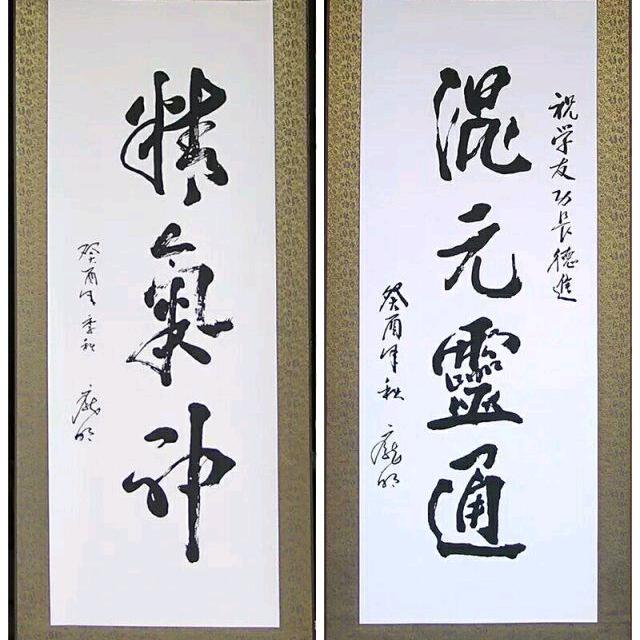 祝学友功长德進
混元靈通
癸酉年秋 龐明
精氣神
癸酉年季秋 龐明